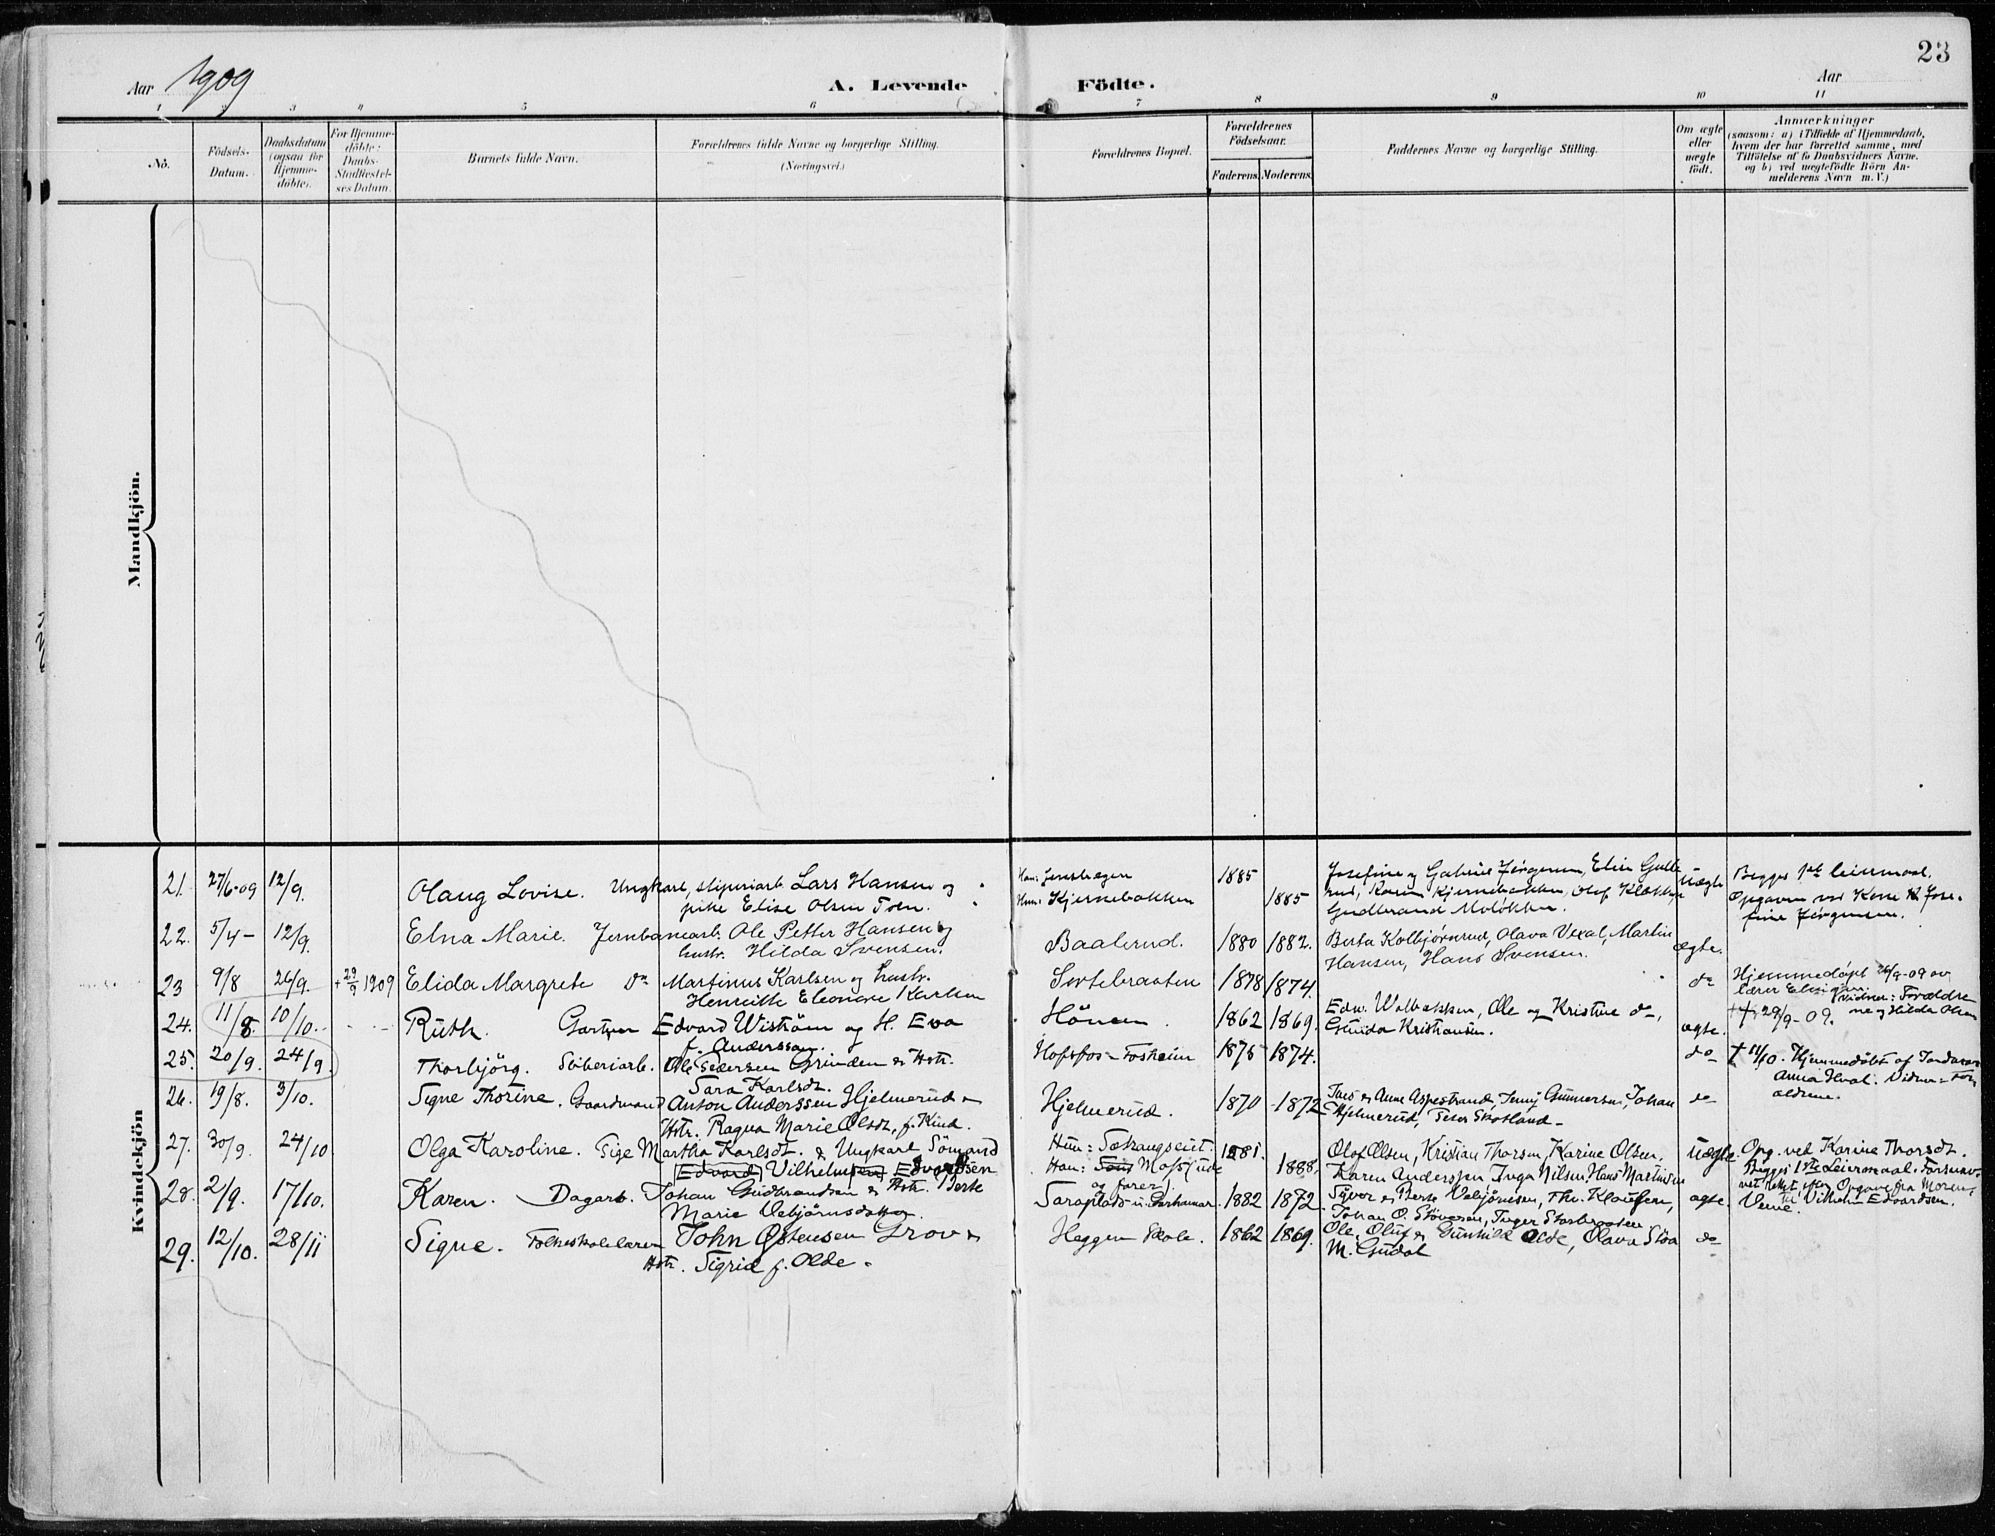 23
Aar 1909
A. Levende Födte.
Aar
1 2 3 4 5 6 7 8 9 10 11
No.
Födsels-
Datum.
Daabsdatum
(ogsaa for
Hjemme-
döbte).
For Hjemme-
döbte:
Daabs-
Stadfæstel-
ses Datum.
Barnets fulde Navn.
Forældrenes fulde Navne og borgerlige Stilling.
(Næringsvei.)
Forældrenes Bopæl.
Forældrenes
Födselsaar.
Faderens. Moderens.
Faddernes Navne og borgerlige Stilling.
Om ægte
eller
uægte
födt.
Anmærkninger
(saasom: a) i Tilfælde af Hjemmedaab,
hvem der har forrettet samme, med
Tilföielse af to Daabsvidners Navne.
og b) ved uægtefödte Börn An-
melderens Navn m. V.)
Mandkjön.
Kvindekjön
21. 27/6-09 12/9. Olaug Lovise. Ungkarl, sliperiarb. Lars Hansen og
pike Elise Olsen Toen.
Han:
Hun: Kjernebakken
1885
1885
Josefine og Gabriel Jørgensen, Elise
Karen Kjernebakken, Olof
Gudbrand
Uægte
Begges 1ste Leiermaal.
Opgaven ved Kone Jose-
fine Jörgensen.
22. 5/4 - 12/9. Elna Marie. Jernbanearb. Ole Petter Hansen og
hustr. Hilda Svensen.
Baalerud. 1880 1882.
Berta Kolbjørnrud, Olava Vexal, Martin
Hansen, Hans Svensen.
ægte.
23 9/8 26/9. + 29/9 1909 Elida Margrete do Martinus Karlsen og hustr.
Henriette Eleonore Karlsen
Sortebraaten 1878 1874.
do
Hjemmedøpt 26/9-09 av
lærer
vidner: Foreldre
ne og Hilda Olsen
† 29/9-09.
24. 11/8. 10/10. Ruth. Gartner Edvard Wiström og H. Eva
f. Andersson.
Hönen 1862 1869.
Edw. Wolbakken, Ole og Kristine do,
Gunda Kristiansen.
ægte.
25. 20/9. 24/9. Thorbjörg. Sliberiarb. Ole Pedersen Grinden & Hstr.
Sara Karlsdt.
Hofsfos - Fosheim 1875 1874.
do
† 11/10. Hjemmedøbt af Jordmor
Anna Hval. Vidner: For
ældrene.
26. 19/8. 3/10. Signe Thorine. Gaardmand Anton Anderssen Hjelmerud &
Hstr. Ragna Marie Olsdt. f. Kind.
Hjelmerud. 1870 1872
Anne Aspestrand, Jenny Gunnersen, Johan
Hjelmerud, Peter Skotland -
do
27. 30/9. 24/10 Olga Karoline. Pige Martha Karlsdt. & Ungkarl Sömand
Edvard Vilhelm Edvardsen
Hun:
Han: Moss (ude
og farer).
1881.
1888.
Olof Olsen, Kristian Thorsen, Karine Olsen,
Karen Anderssen, Inga Nilsen, Hans Martinsen
Uægte
Opg. ved Karine Thorsdt.
Begges 1ste Leiermaal. Fornav-
net rettet efter Opgave fra Moren
til Vilhelm Edvardsen.
28. 2/9. 17/10. Karen. Dagarb. Johan Gudbrandsen & Hstr. Berte
Marie Vebjörnsdatter
1882 1872.
Syver & Berte Vebjørnsen, Thv. Klausen,
Johan O. Stövern, Inger
ægte.
29. 12/10. 28/11 Signe. Folkeskolelærer John Østensen Grov &
Hstr. Sigrid f. Olde.
Heggen Skole. 1862 1869.
Ole, Oluf & Gunhild Olde, Olava
M. Gudal
do